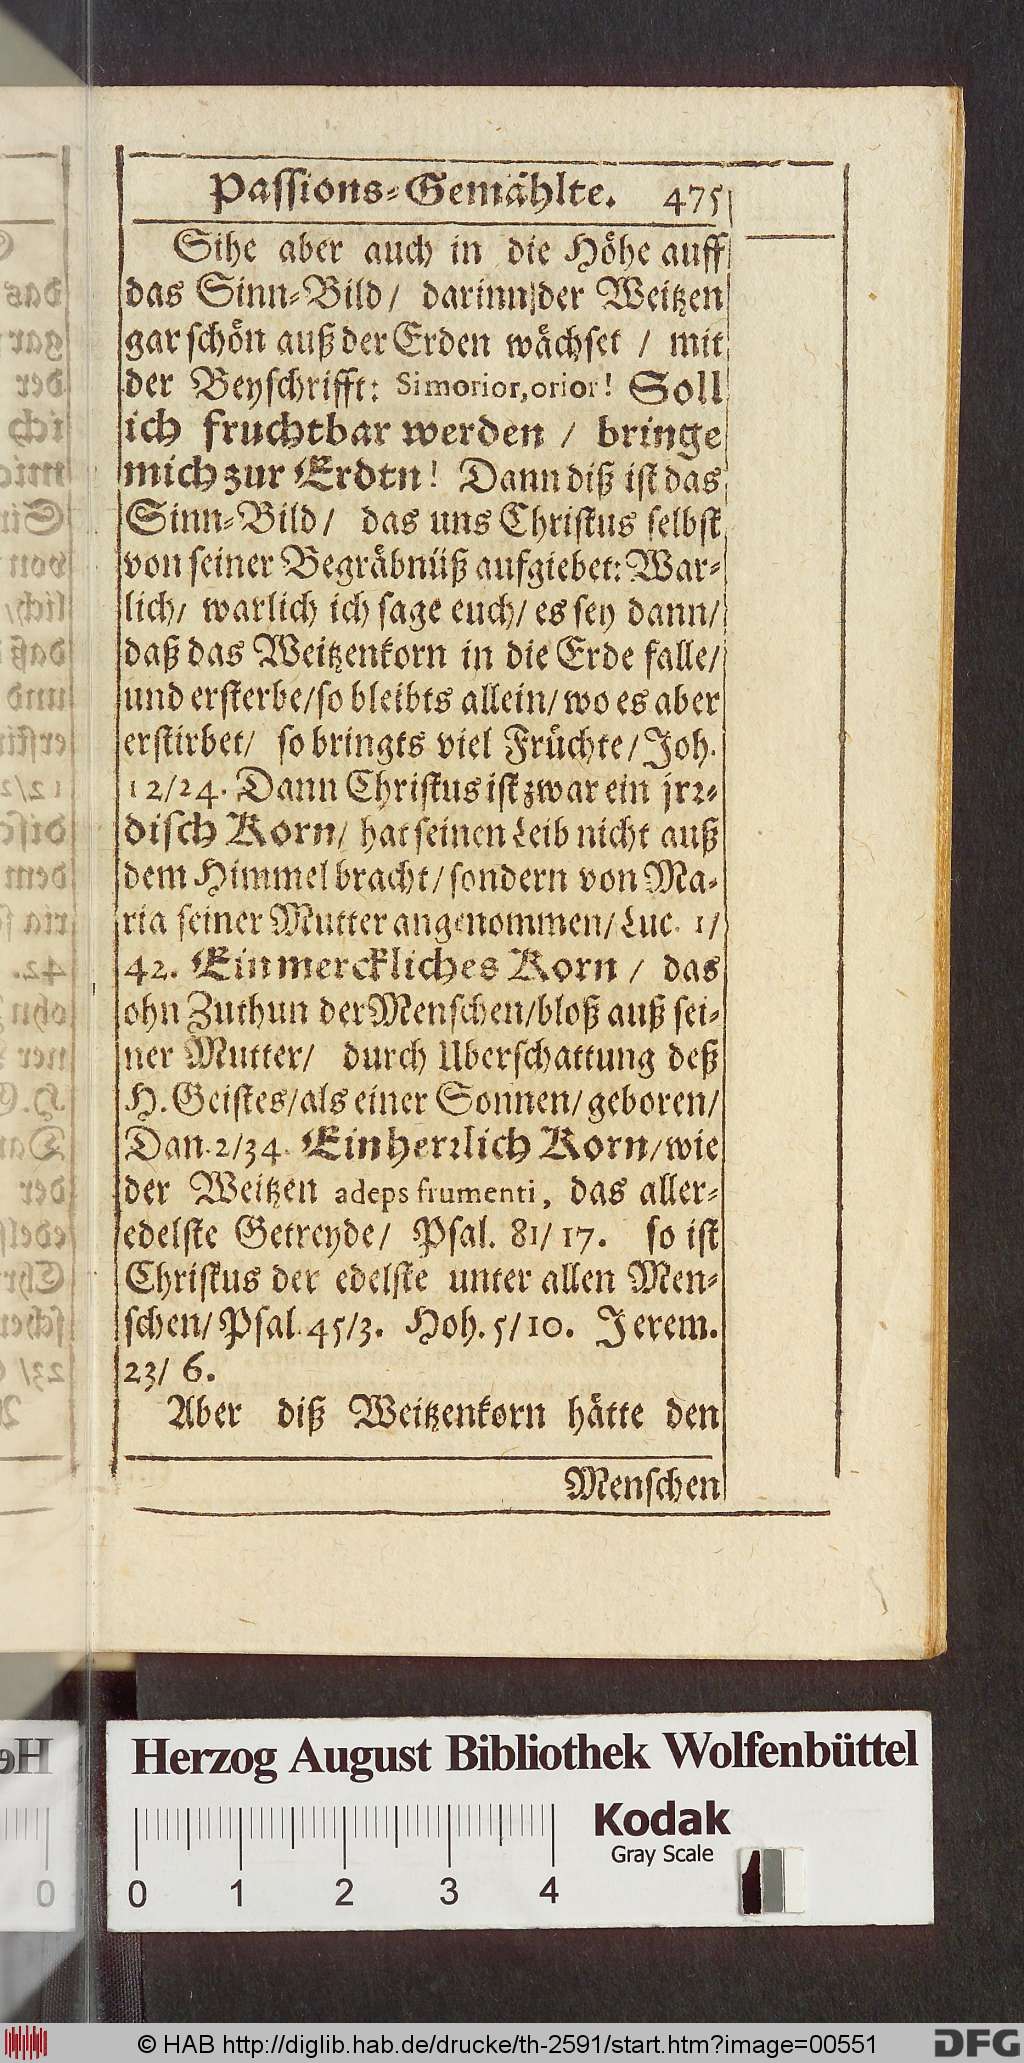 Passions-Gemählte. 475
Sihe aber auch in die Höhe auff
das Sinn-Bild/ darinn der Weitzen
gar schön auß der Erden wächset / mit
der Beyschrifft: Si morior, orior! Soll
ich fruchtbar werden / bringe
mich zur Erdtn! Dann diß ist das
Sinn-Bild/ das uns Christus selbst
von seiner Begräbnüß aufgiebet: War-
lich/ warlich ich sage euch/ es sey dann/
daß das Weitzenkorn in die Erde falle/
und ersterbe/ so bleibts allein/ wo es aber
erstirbet/ so bringts viel Früchte/ Joh.
12/24. Dann Christus ist zwar ein jrr-
disch Korn/ hat seinen Leib nicht auß
dem Himmel bracht/ sondern von Ma-
ria seiner Mutter angenommen/ Luc. 1/
42. Ein merckliches Korn / das
ohn Zuthun der Menschen/ bloß auß sei-
ner Mutter/ durch Uberschattung deß
H. Geistes/ als einer Sonnen/ geboren/
Dan. 2/34. Ein herrlich Korn/ wie
der Weitzen adeps frumenti, das aller-
edelste Getreyde/ Psal. 81/ 17. so ist
Christus der edelste unter allen Men-
schen/ Psal. 45/3. Hoh. 5/10. Jerem.
23/ 6.
Aber diß Weitzenkorn hätte den
Menschen
Herzog August Bibliothek Wolfenbüttel
Kodak
Gray Scale
0 1 2 3 4
© HAB http://diglib.hab.de/drucke/th-2591/start.htm?image=00551
DFG